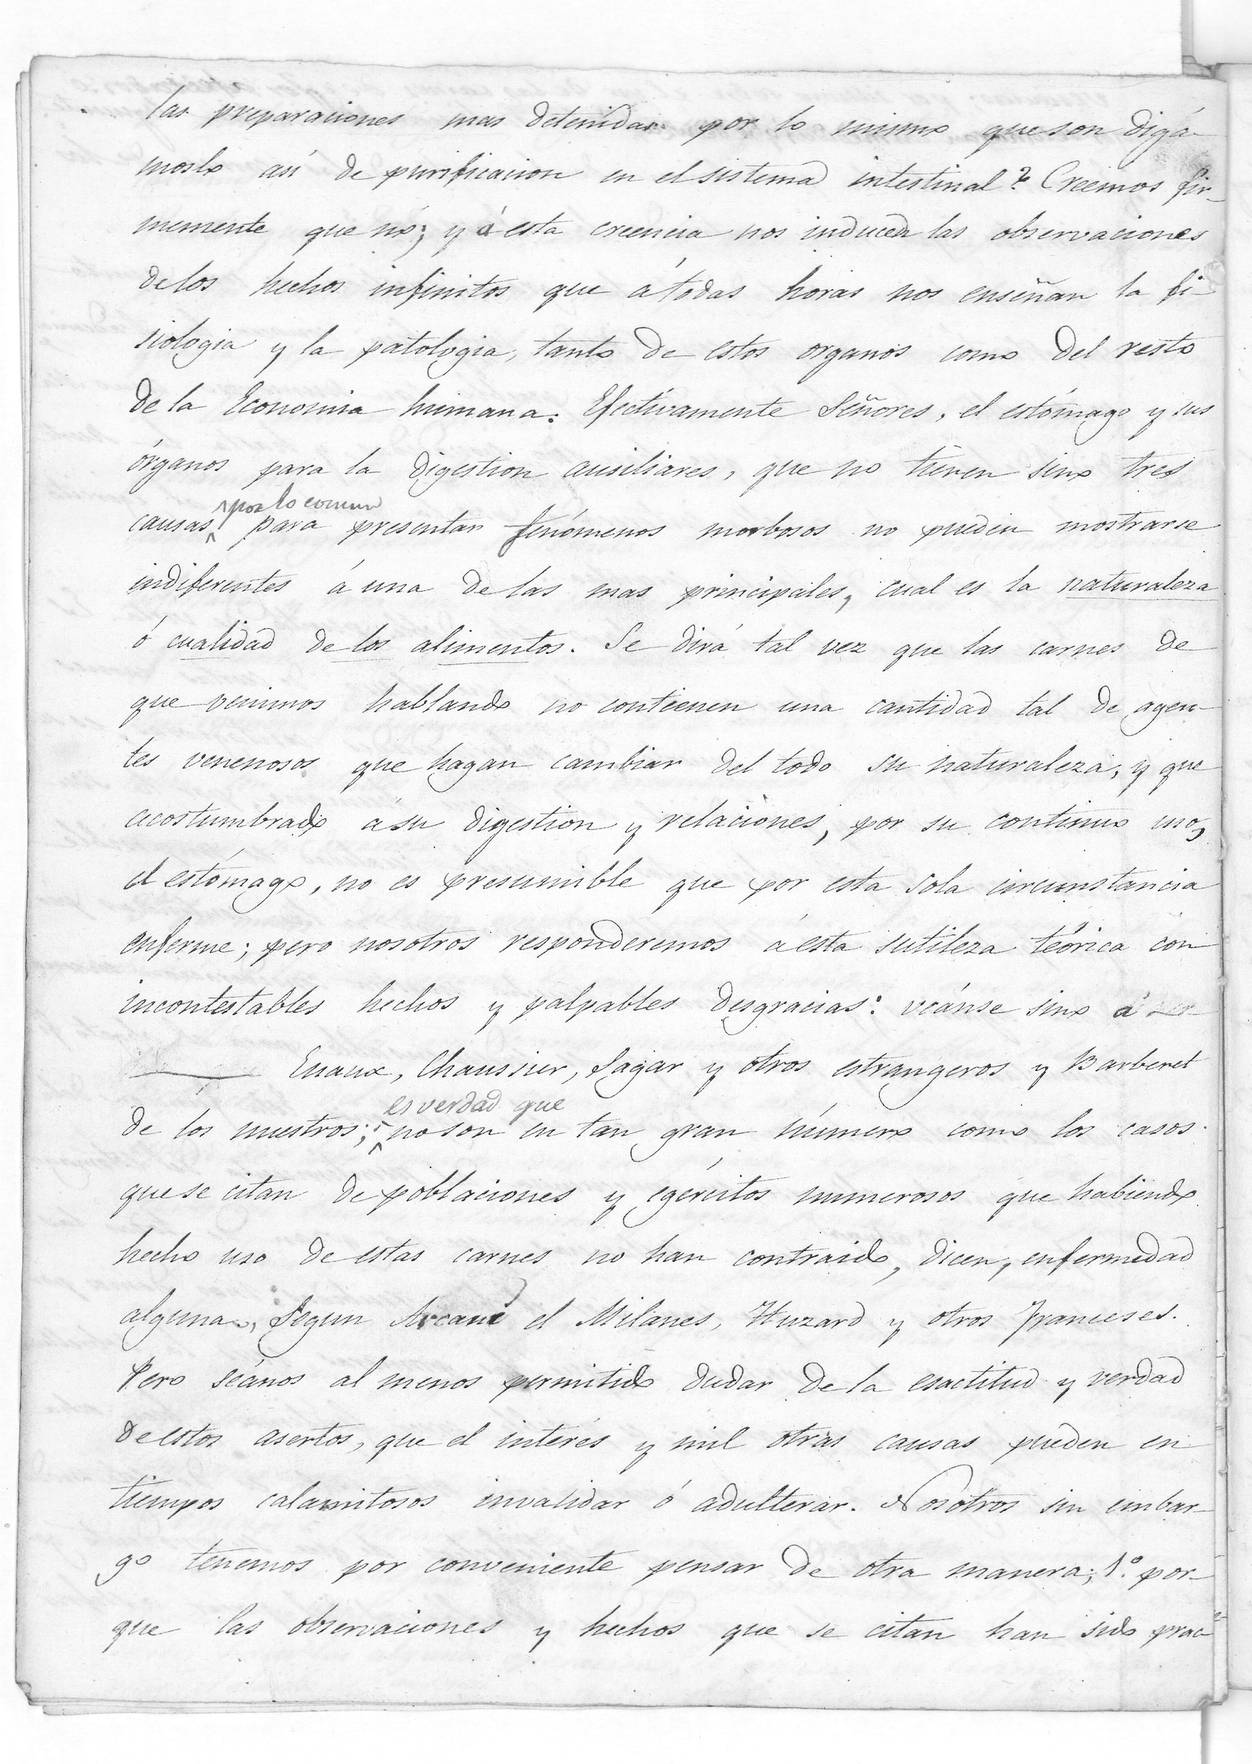 las preparaciones mas detenidas por lo mismo que son digá-
moslo así de purificacion en el sistema intestinal? Creemos fir-
memente que nó; y á esta creencia nos inducen las observaciones
de los hechos infinitos que á todas horas nos enseñan la fi-
siologia y la patologia, tanto de estos organos como del resto
de la Economia humana. Efectivamente Señores, el estómago y sus
órganos para la digestion ausiliares, que no tienen sino tres
por lo comun
causas para presentar fenómenos morbosos no pueden mostrarse
indiferentes á una de las mas principales, cual es la naturaleza
ó cualidad de los alimentos. Se dirá tal vez que las carnes de
que venimos hablando no contienen una cantidad tal de agen-
tes venenosos que hagan cambiar del todo su naturaleza, y que
acostumbrado á su digestion y relaciones, por su continuo uso,
el estómago, no es presumible que por esta sola circunstancia
enferme; pero nosotros responderemos á esta sutileza teórica con
incontestables hechos y palpables desgracias: véanse sino á
Enaux, Chaussier, Sagar y otros estrangeros y Barberet
es verdad que
de los nuestros; no son en tan gran número como los casos
que se citan de poblaciones y egércitos numerosos que habiendo
hecho uso de estas carnes no han contraido, dicen, enfermedad
alguna, Segun el Milanes, Huzard y otros Franceses.
Pero séanos al menos permitido dudar de la esactitud y verdad
de estos asertos, que el interés y mil otras causas pueden en
tiempos calamitosos invalidar ó adulterar. Nosotros sin embar-
go tenemos por conveniente pensar de otra manera; 1.º por-
que las observaciones y hechos que se citan han sido prac-